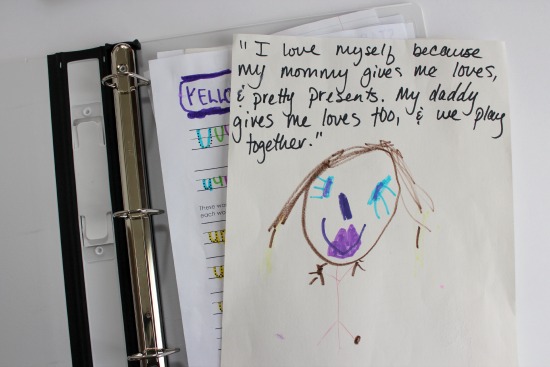 " I love myself because
my mommy gives me loves,
& pretty presents. My daddy
gives me loves too, & we play
together."
YELLO
There
each